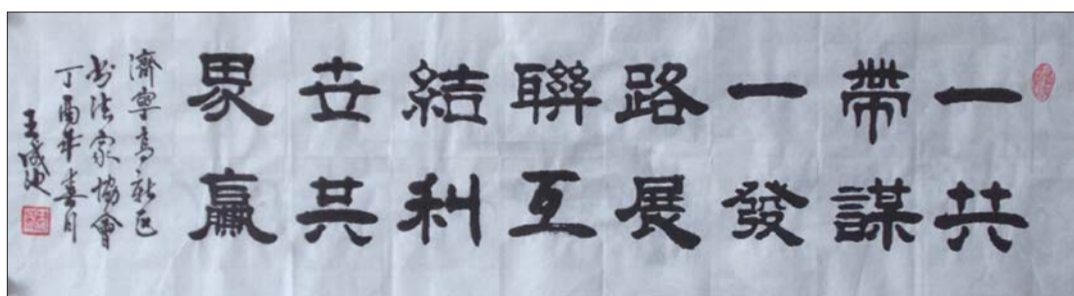 一帶一路聯結世界
共謀發展互利共贏
濟寧高新区
书法家協會
丁酉年春月